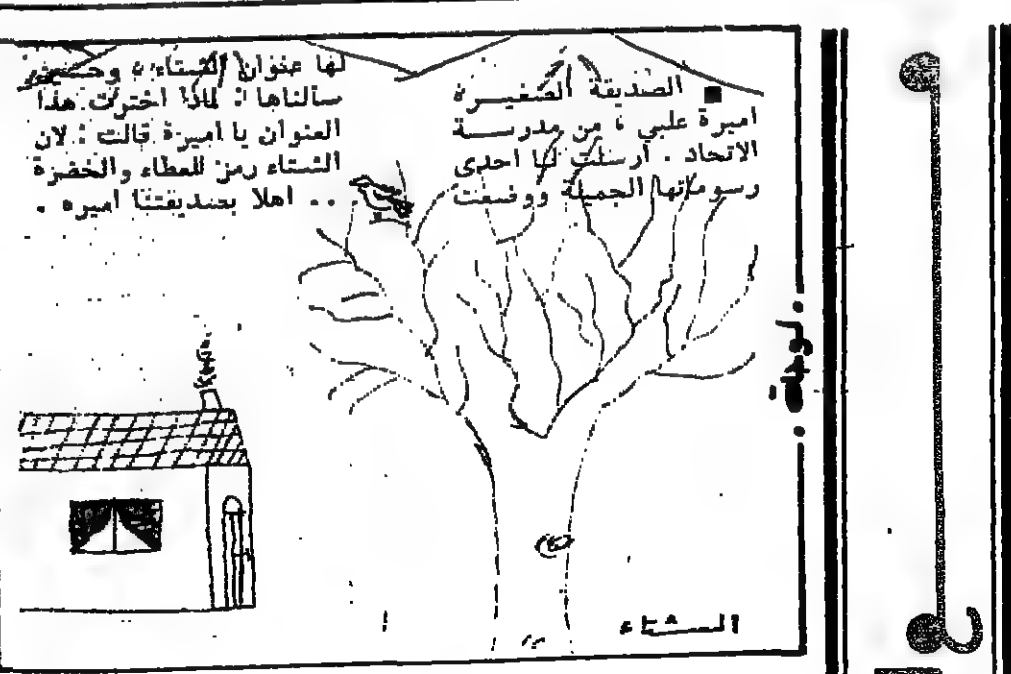 ■ الصديقة الصغيرة
اميرة علبي ، من مدرسة
الاتحاد . ارسلت لنا احدى
رسوماتها الجميلة ووضعت
لها عنوان الشتاء ، وحين
سألناها : لماذا اخترت هذا
العنوان يا اميرة قالت : لان
الشتاء رمز للعطاء والخضرة
.. اهلا بصديقتنا اميره .
• لوحة •
الشتاء